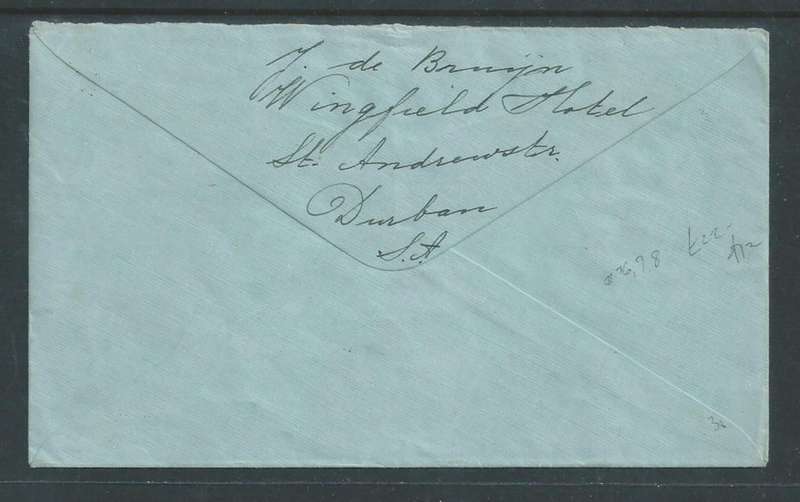 J. de Bruijn
Wingfield Hotel
St. Andrewstr.
Durban
S.A